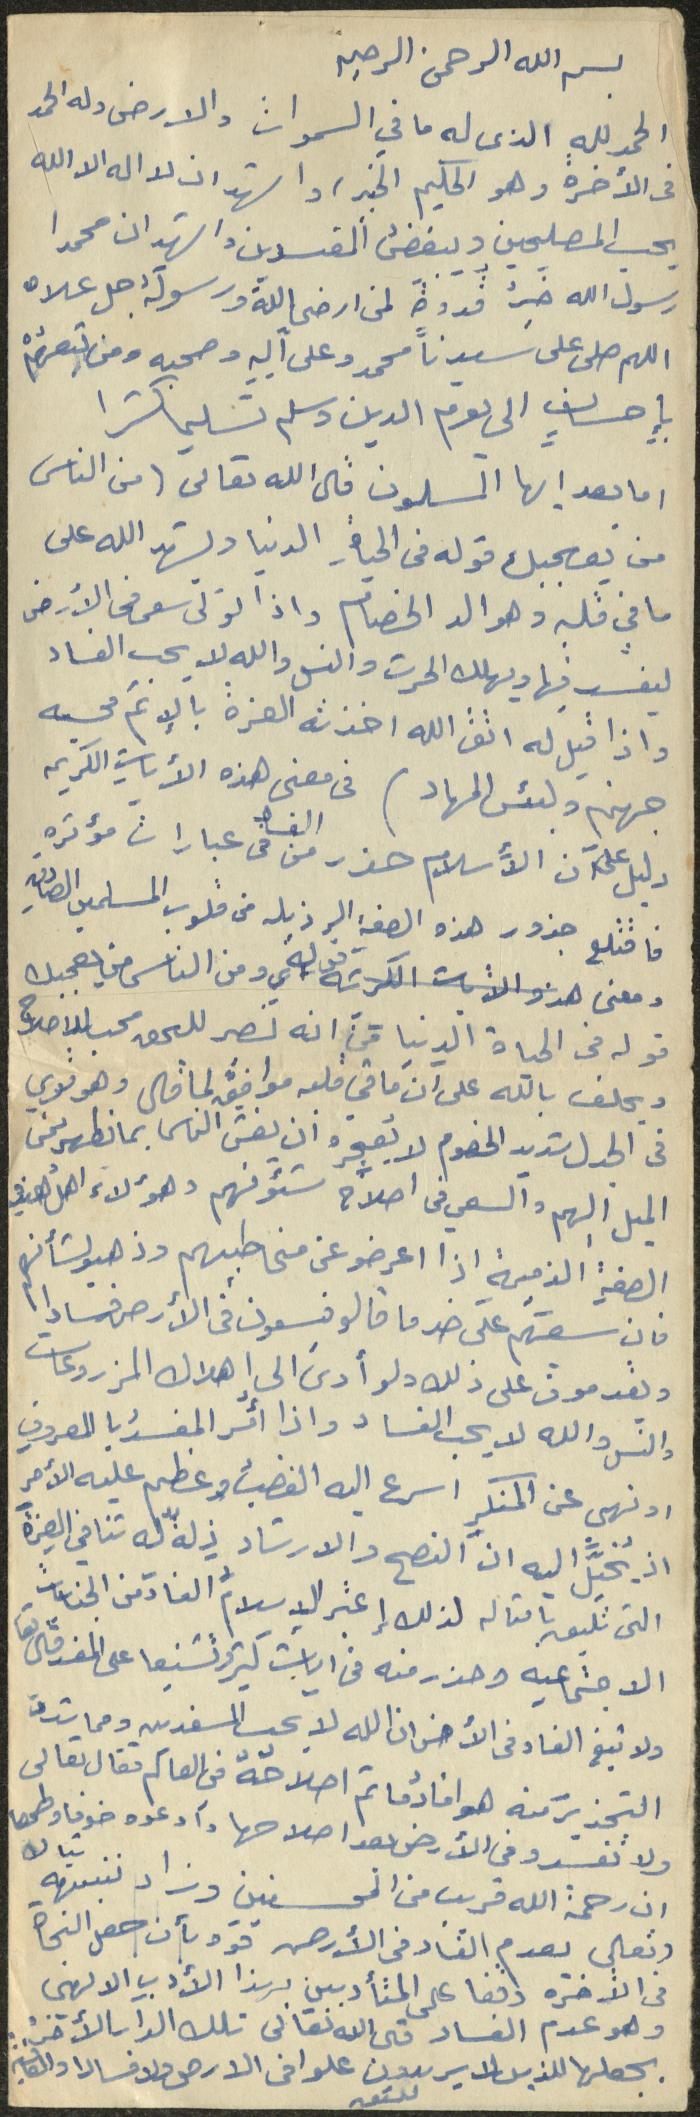 بسم الله الرحمن الرحيم
الحمد لله الذى له ما في السموات والارض وله الحمد
فى الأخرة وهو الحكيم الخبير واشهد ان لا اله الا الله
يحب المصلحين ويبغض المفسدين واشهد ان محمدا
رسول الله خير قدوة لمن ارضى الله ورسوله جل علاه
اللهم صلى على سيدنا محمد وعلى آله وصحبه ومن تبعهم
بإحسان الى يوم الدين وسلم تسليما كثيرا
اما بعد ايها المسلمون قال الله تعالى (من الناس
من يعجبك قوله فى الحياة الدنيا ويشهد الله على
ما في قلبه وهو الد الخصام واذا تولى سعى فى الأرض
ليفسد فيها ويهلك الحرث والنسل والله لا يحب الفساد
واذا قيل له اتق الله اخذته العزة بالإثم فحسبه
جهنم ولبئس المهاد) فى معنى هذه الأيات الكريمه
دليل على أن الأسلام حذر من الفساد فى عبارات مؤثره
فاقتلع جذور هذه الصفة الرذيله من قلوب المسلمين الصادقين
ومعنى هذه الايات الكريمة قوله ومن الناس من يعجبك
قوله فى الحياة الدنيا انه نصر للحق محب للاصلاح
ويحلف بالله على ان ما في قلبه موافق لما قال وهو قوي
فى الجدل شديد الخصوم لا يعجزه أن يغش الناس بما يظهر من
الميل اليهم والسعي فى اصلاح شئونهم وهؤلاء اهل هذه
الصفة الذميمة اذا اعرضو عن مخاطبهم وذهبو لشأنهم
فان سعيهم على ضد ما قالو يسعون فى الأرض فسادا
ويقدمون على ذلك ولو أدى الى إهلاك المزروعات
والنسل والله لا يحب الفساد واذا أمر المفسد بالمعروف
او نهى عن المنكر اسرع اليه الغضب وعظم عليه الأمر
اذ يُخيَّل اليه ان النصح والارشاد ذلة له تنافي العزة
التى تليق بامثاله لذلك إعتبر الاسلام الفساد من الجنايات
الاجتماعيه وحذر منه فى ايات كثيرة وتشنيعا على المفسد قال تعالى
ولا تبغ الفساد فى الأرض ان الله لا يحب المفسدين ومما شدد
التحذير منه هو افساد ما تم اصلاحه فى العالم فقال تعالى
ولا تفسدو فى الأرض بعد اصلاحها وادعوه خوفا وطمعا
ان رحمة الله قريب من المحسنين وزاد تنبيهه تبارك
وتعالى بعدم الفساد فى الأرض قوة بأن جعل النجاة
فى الآخرة وقفا على المتأدبين بهذا الأدب الالهى
وهو عدم الفساد قال الله تعالى تلك الدار الأخرة
نجعلها للذين لا يريدون علوا فى الارض ولا فسادا والعاقبة
للمتقين